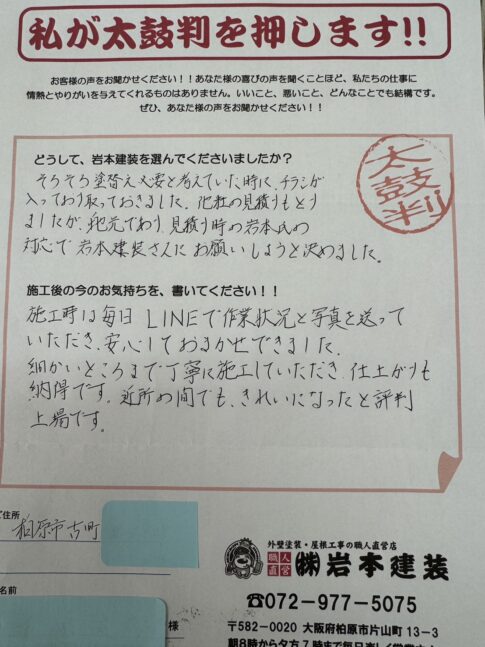 私が太鼓判を押します!!
お客様の声をお聞かせください！！あなた様の喜びの声を聞くことほど、私たちの仕事に
情熱とやりがいを与えてくれるものはありません。いいこと、悪いこと、どんなことでも結構です。
ぜひ、あなた様の声をお聞かせください！！
どうして、岩本建装を選んでくださいましたか？
太鼓判
そろそろ塗替え必要と考えていた時に、チラシが
入っており取っておきました。他社の見積りもとり
ましたが、地元であり、見積り時の岩本氏の
対応で岩本建装さんにお願いしようと決めました。
施工後の今のお気持ちを、書いてください！！
施工時は毎日LINEで作業状況と写真を送って
いただき、安心しておまかせできました。
細かいところまで丁寧に施工していただき、仕上がりも
納得です。近所の間でも、きれいになったと評判
上場です。
ご住所
柏原市古町
外壁塗装・屋根工事の職人直営店
職人直営
㈱岩本建装
☎072-977-5075
名前
様
〒582-0020 大阪府柏原市片山町13-3
朝8時から夕方7時まで毎日楽しく営業